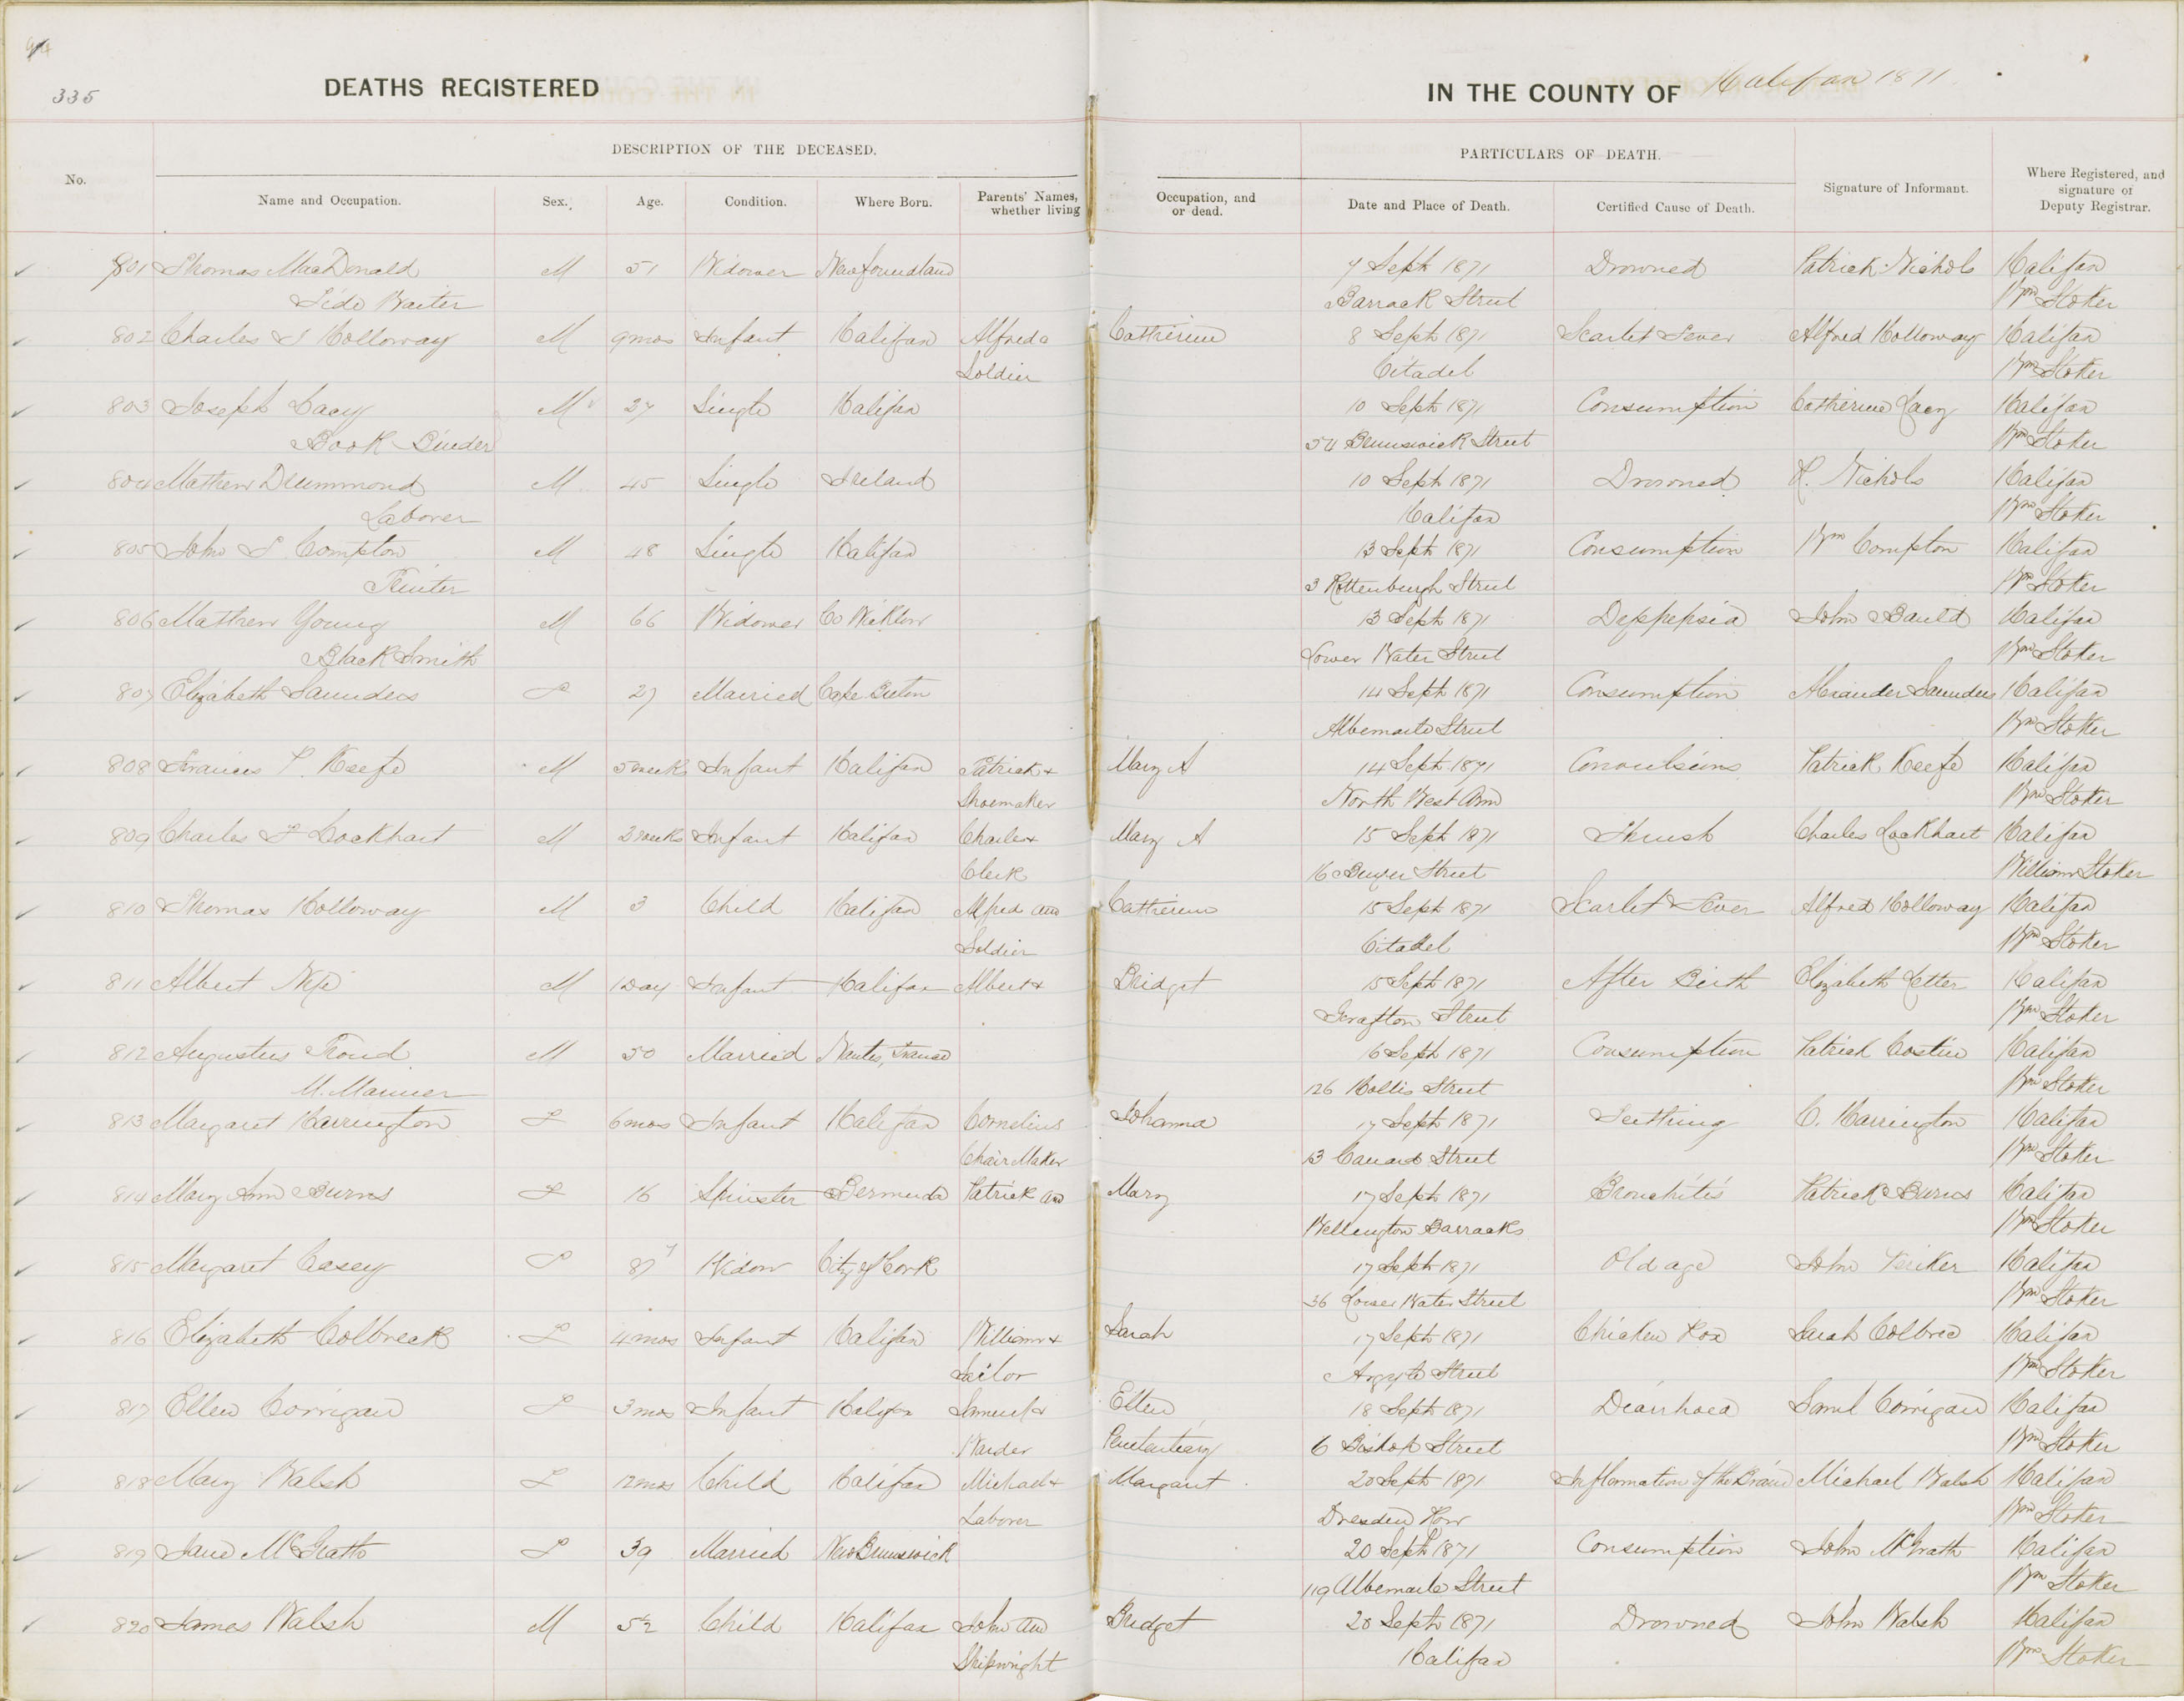 335
DEATHS REGISTERED IN THE COUNTY OF Halifax 1871
DESCRIPTION OF THE DECEASED. PARTICULARS OF DEATH.
No. Name and Occupation. Sex. Age. Condition. Where Born. Parents' Names, whether living Occupation, and or dead. Date and Place of Death. Certified Cause of Death. Signature of Informant. Where Registered, and signature of Deputy Registrar.
801 Thomas MacDonald M 51 Widower Newfoundland 7 Sept 1871 Drowned Patrick Nichols Halifax
Tide Waiter Barrack Street Wm Stoker
802 Charles Holloway M 9 mos Infant Halifax Alfred & Catherine 8 Sept 1871 Scarlet Fever Alfred Holloway Halifax
Soldier Citadel Wm Stoker
803 Joseph Lacy M 27 Single Halifax 10 Sept 1871 Consumption Catherine Lacy Halifax
Book Binder 54 Brunswick Street Wm Stoker
804 Mathew Drummond M 45 Single Ireland 10 Sept 1871 Drowned P. Nichols Halifax
Laborer Halifax Wm Stoker
805 John S. Compton M 48 Single Halifax 13 Sept 1871 Consumption Wm Compton Halifax
Printer 3 Rottenburgh Street Wm Stoker
806 Mathew Young M 66 Widower Co Wicklow 13 Sept 1871 Deppepsia John Bauld Halifax
Black Smith Lower Water Street Wm Stoker
807 Elizabeth Saunders F 27 Married Cape Breton 14 Sept 1871 Consumption Alexander Saunders Halifax
Albemarle Street Wm Stoker
808 Francis P. Keefe M 5 weeks Infant Halifax Patrick & Mary A 14 Sept 1871 Convulsions Patrick Keefe Halifax
Shoemaker North West Arm Wm Stoker
809 Charles F Lockhart M 3 weeks Infant Halifax Charles & Mary A 15 Sept 1871 Thrush Charles Lockhart Halifax
Clerk 16 Street William Stoker
810 Thomas Holloway M 3 Child Halifax Alfred and Catherine 15 Sept 1871 Scarlet Fever Alfred Holloway Halifax
Soldier Citadel Wm Stoker
811 Albert M 1 Day Infant Halifax Albert & Bridget 15 Sept 1871 After Birth Elizabeth Letter Halifax
Grafton Street Wm Stoker
812 Augustus M 50 Married Nantes, France 16 Sept 1871 Consumption Patrick Costin Halifax
M. Mariner 126 Hollis Street Wm Stoker
813 Margaret Harrington F 6 mos Infant Halifax Cornelius Johanna 17 Sept 1871 Teething C. Harrington Halifax
Chair Maker 13 Street Wm Stoker
814 Mary Ann Burns F 16 Spinster Bermuda Patrick and Mary 17 Sept 1871 Bronchitis Patrick Burns Halifax
Wellington Barracks Wm Stoker
815 Margaret Casey F 87 Widow City of Cork 17 Sept 1871 Old age John Halifax
36 Lower Water Street Wm Stoker
816 Elizabeth Colbreck F 4 mos Infant Halifax William & Sarah 17 Sept 1871 Chicken Pox Sarah Colbrec Halifax
Sailor Argyle Street Wm Stoker
817 Ellen Corrigan F 3 mos Infant Halifax Samuel & Ellen 18 Sept 1871 Diarrhoea Saml Corrigan Halifax
Warder Penetentiary 6 Bishop Street Wm Stoker
818 Mary Walsh F 12 mos Child Halifax Michael & Margaret 20 Sept 1871 Inflormation of the Brain Michael Walsh Halifax
Laborer Dresden Row Wm Stoker
819 Jane McGrath F 39 Married New Brunswick 20 Sept 1871 Consumption John McGrath Halifax
119 Albemarle Street Wm Stoker
820 James Walsh M 5½ Child Halifax John and Bridget 20 Sept 1871 Drowned John Walsh Halifax
Shipwright Halifax Wm Stoker